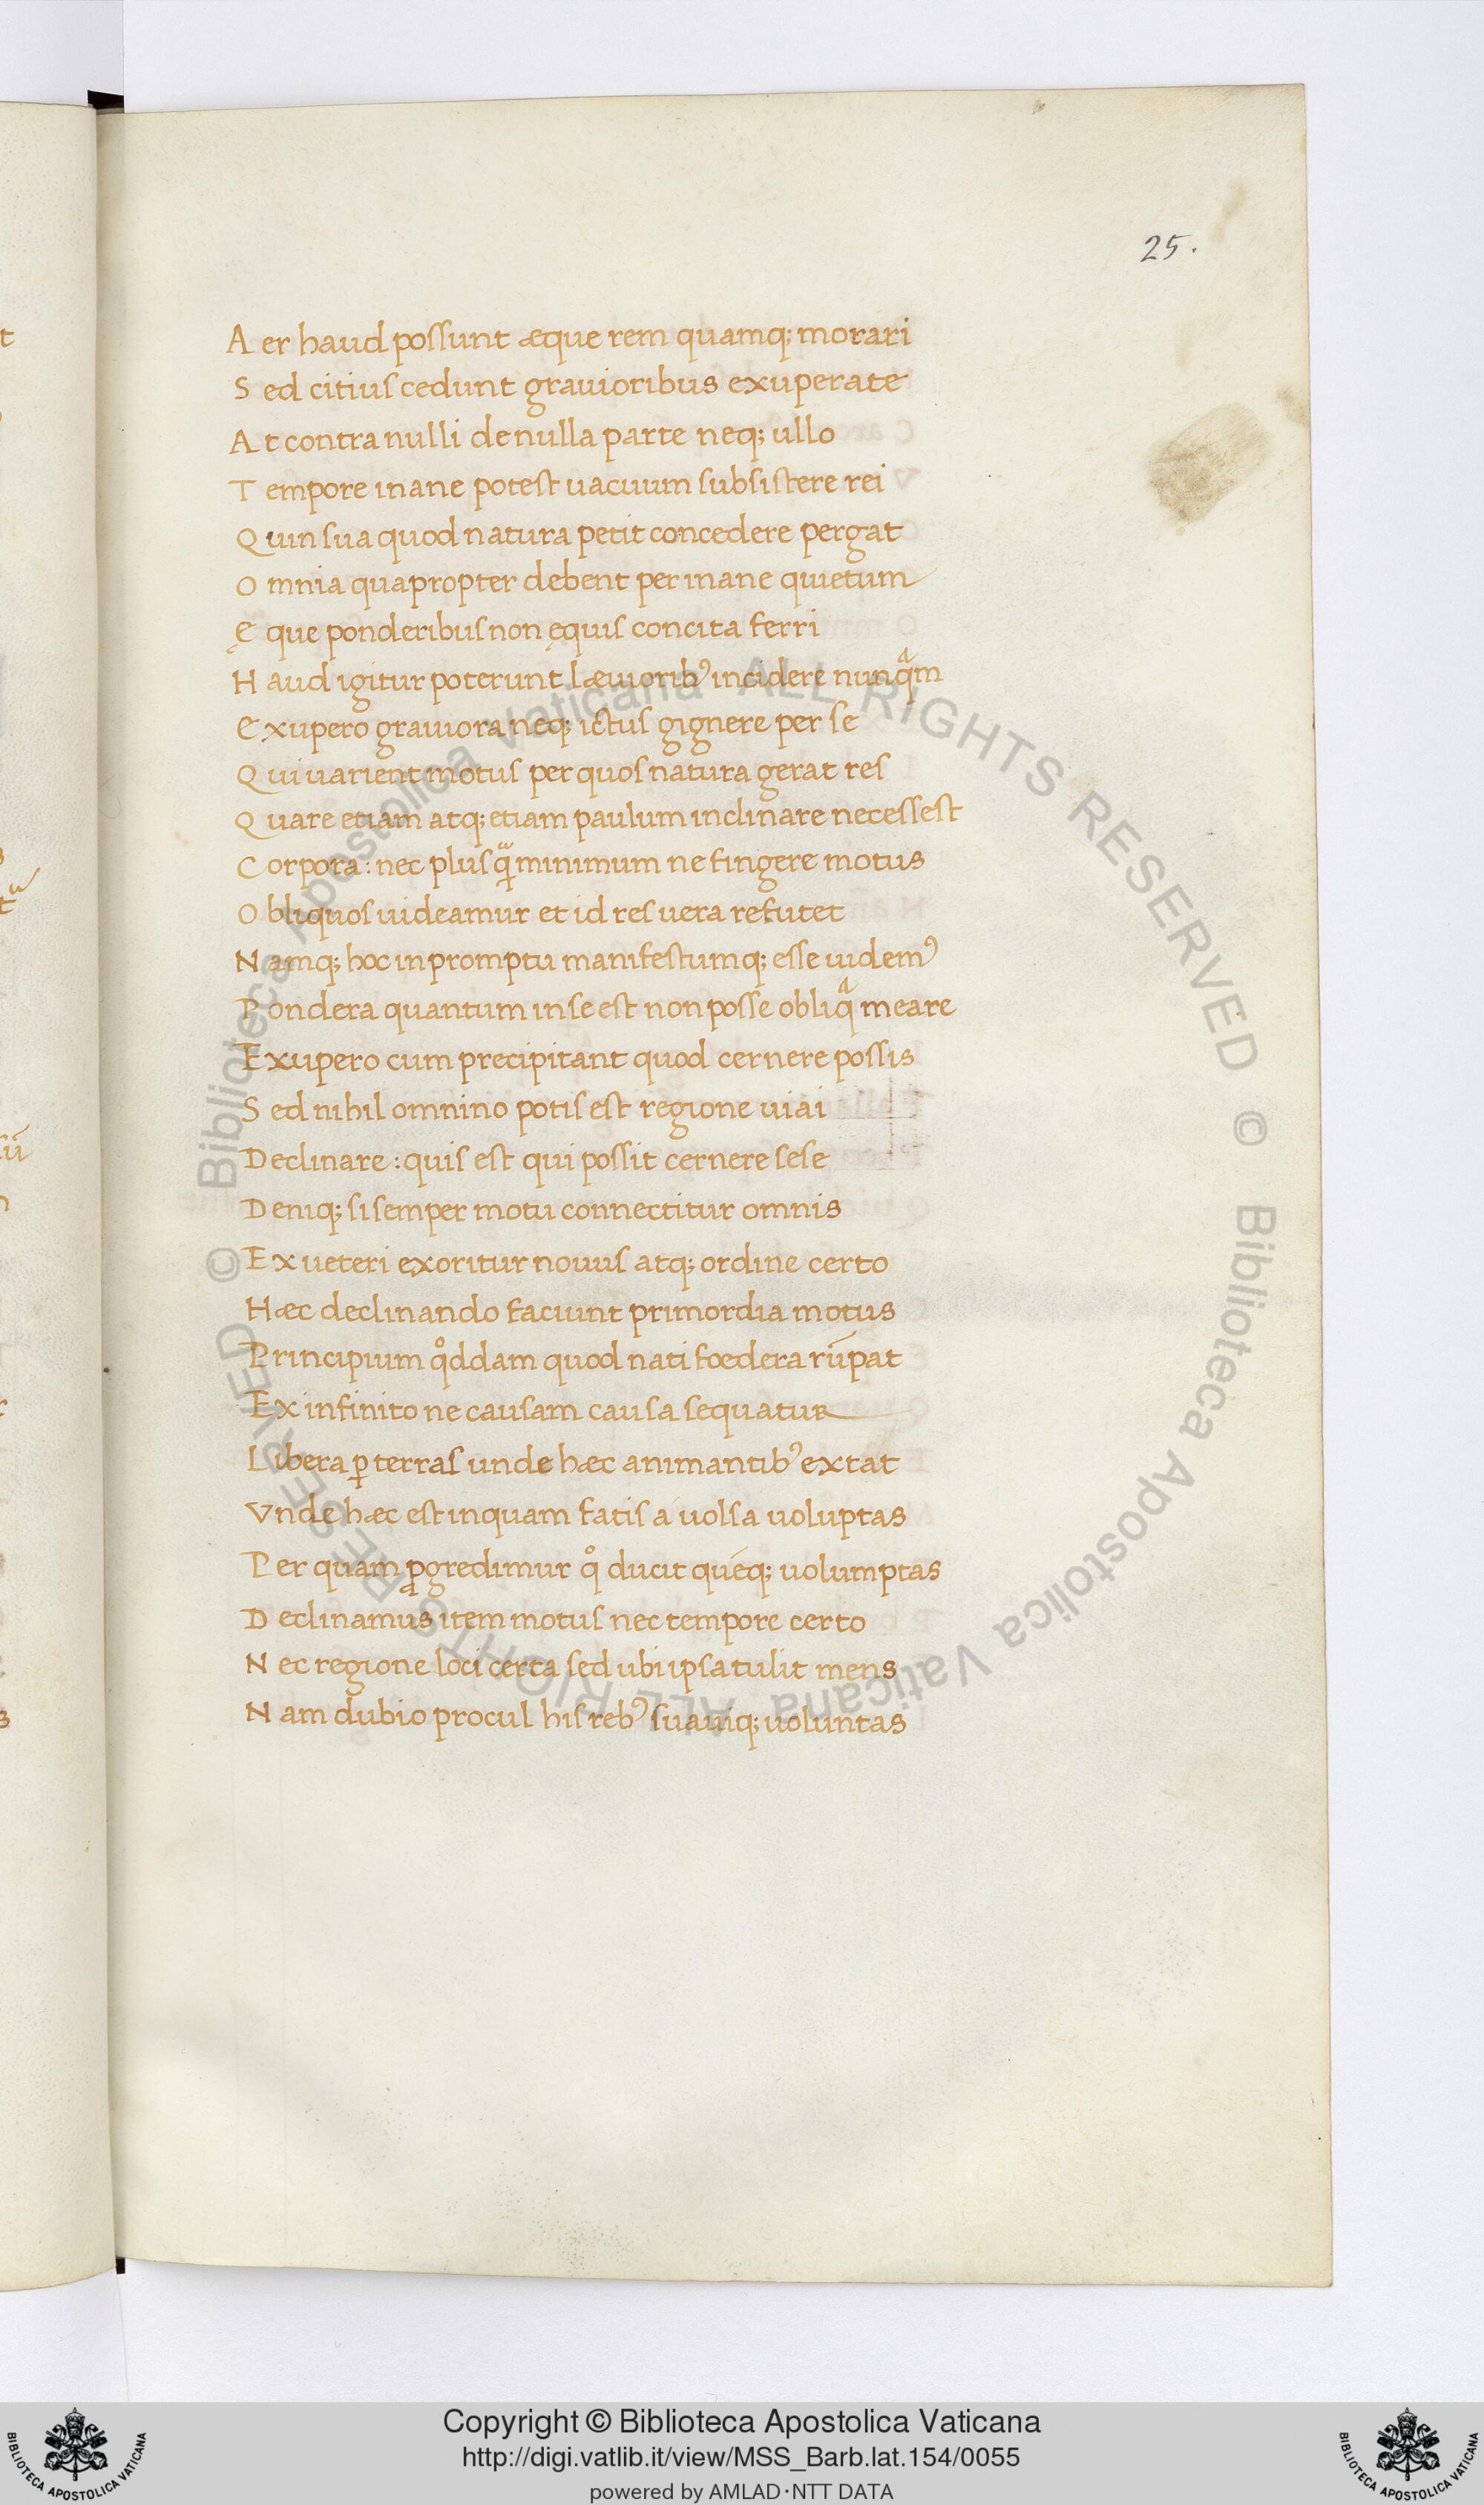 25.
A er haud possunt æque rem quamq; morari
S ed citius cedunt grauioribus exuperate
A t contra nulli de nulla parte neq; ullo
T empore inane potest uacuum subsistere rei
Q uin sua quod natura petit concedere pergat
O mnia quapropter debent per inane quietum
Ę que ponderibus non ęquis concita ferri
H aud igitur poterunt læuioribꝰ incidere nunqᷓm
E xupero grauiora neq; ictus gignere per se
Q ui uarient motus per quos natura gerat res
Q uare etiam atq; etiam paulum inclinare necessest
C orpora: nec plus qᷓ minimum ne fingere motus
O bliquos uideamur et id res uera refutet
N amq; hoc in promptu manifestumq; esse uidemꝰ
P ondera quantum in se est non posse obliqᷓ meare
Exupero cum precipitant quod cernere possis
S ed nihil omnino potis est regione uiai
Declinare: quis est qui possit cernere sese
Deniq; si semper motu connectitur omnis
Ex ueteri exoritur nouus atq; ordine certo
Hæc declinando faciunt primordia motus
Principium qͦddam quod nati foedera rūpat
Ex infinito ne causam causa sequatur
Libera ꝑ terras unde hæc animantibꝰ extat
Vnde hæc est inquam fatis a uolsa uoluptas
P er quam ꝓgredimur qͦ ducit quēq; uolumptas
D eclinamus item motus nec tempore certo
N ec regione loci certa sed ubi ipsa tulit mens
N am dubio procul his rebꝰ sua uiq; uoluntas
© Biblioteca Apostolica Vaticana ALL RIGHTS RESERVED © Biblioteca Apostolica Vaticana ALL RIGHTS RESERVED
Copyright © Biblioteca Apostolica Vaticana
http://digi.vatlib.it/view/MSS_Barb.lat.154/0055
powered by AMLAD·NTT DATA
BIBLIOTECA APOSTOLICA VATICANA
BIBLIOTECA APOSTOLICA VATICANA